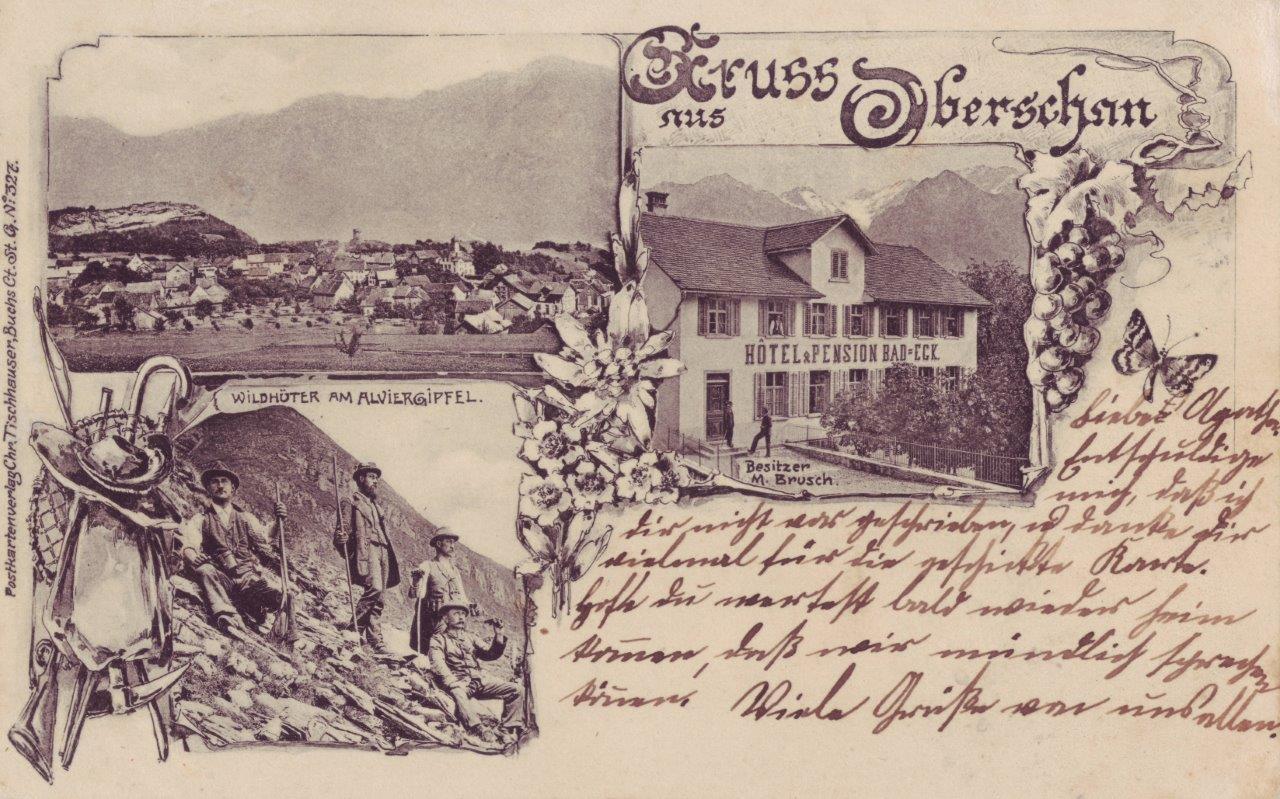 Gruss
aus Oberschan
Postkartenverlag Chr. Tischhauser, Buchs Ct. St. G. No 327.
HÔTEL & PENSION BAD-ECK.
Besitzer
M. Brusch.
WILDHÜTER AM ALVIERGIPFEL.
Liebes
Entschuldige
mich, daß ich
dir nicht was geschrieben, u danke dir
vielmal für die geschikte Karte.
Hoffe du werdest bald wieder heim
kom̄en, daß wir mündlich sprechen
kön̄en. Viele Grüße von uns allen.